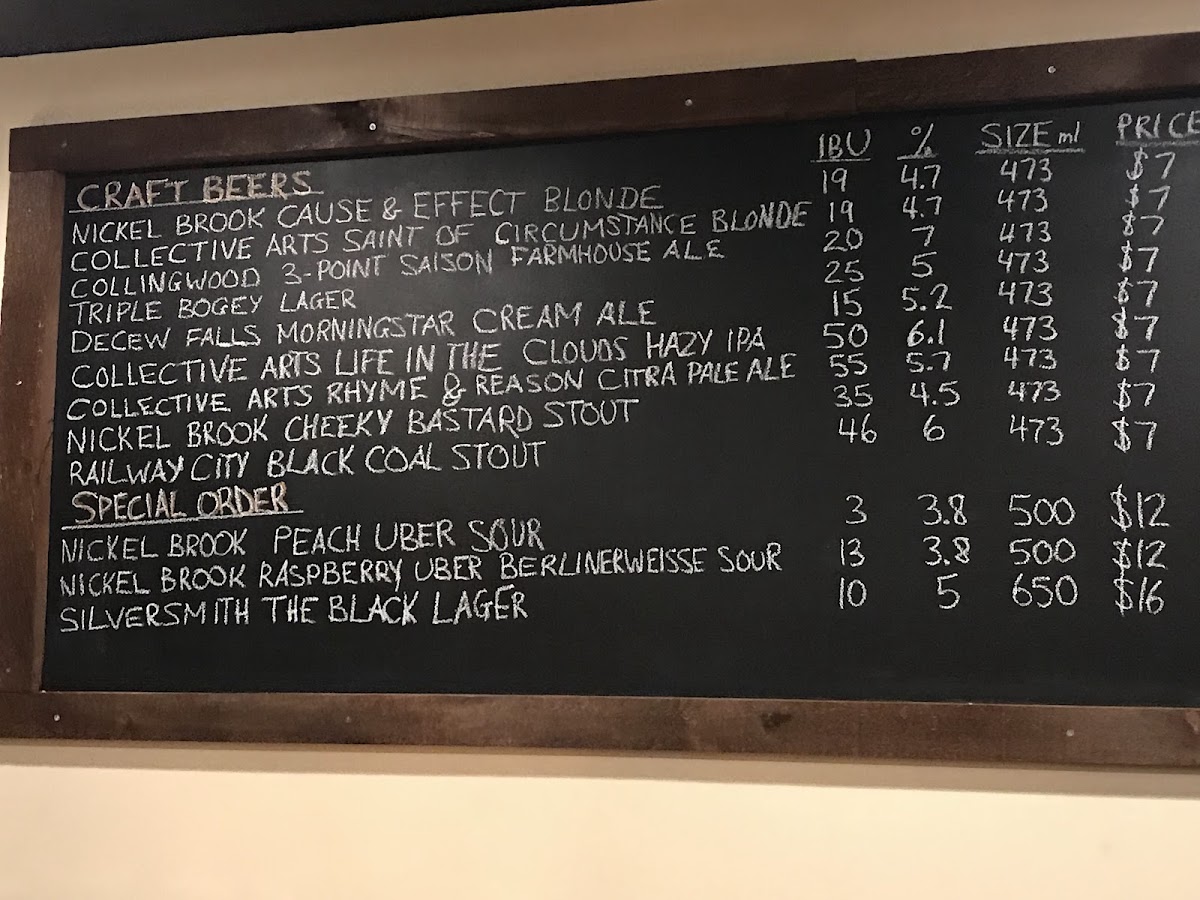 CRAFT BEERS IBU % SIZE ml PRICE
NICKEL BROOK CAUSE & EFFECT BLONDE 19 4.7 473 $7
COLLECTIVE ARTS SAINT OF CIRCUMSTANCE BLONDE 19 4.7 473 $7
COLLINGWOOD 3-POINT SAISON FARMHOUSE ALE 20 7 473 $7
TRIPLE BOGEY LAGER 25 5 473 $7
DECEW FALLS MORNINGSTAR CREAM ALE 15 5.2 473 $7
COLLECTIVE ARTS LIFE IN THE CLOUDS HAZY IPA 50 6.1 473 $7
COLLECTIVE ARTS RHYME & REASON CITRA PALE ALE 55 5.7 473 $7
NICKEL BROOK CHEEKY BASTARD STOUT 35 4.5 473 $7
RAILWAY CITY BLACK COAL STOUT 46 6 473 $7
SPECIAL ORDER
NICKEL BROOK PEACH UBER SOUR 3 3.8 500 $12
NICKEL BROOK RASPBERRY UBER BERLINERWEISSE SOUR 13 3.8 500 $12
SILVERSMITH THE BLACK LAGER 10 5 650 $16